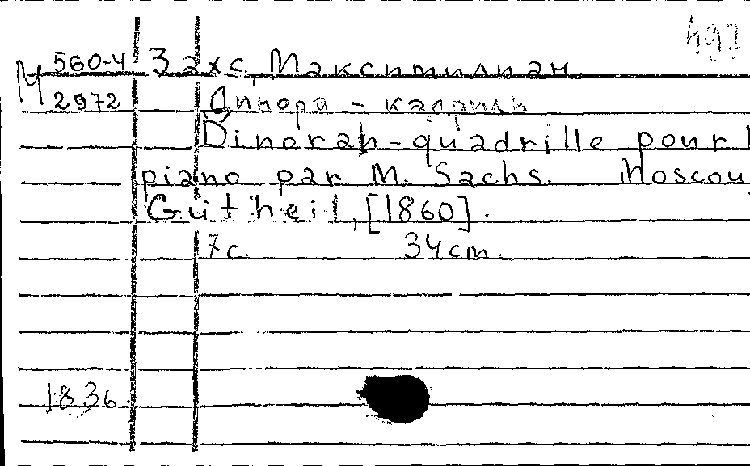 497
М 560-4 Захс, Максимилиан.
2972 Динора - кадриль
Dinorah-quadrille pour l
piano par M. Sachs. Moscou,
Gutheil, [1860].
7с. 34cm.
1836